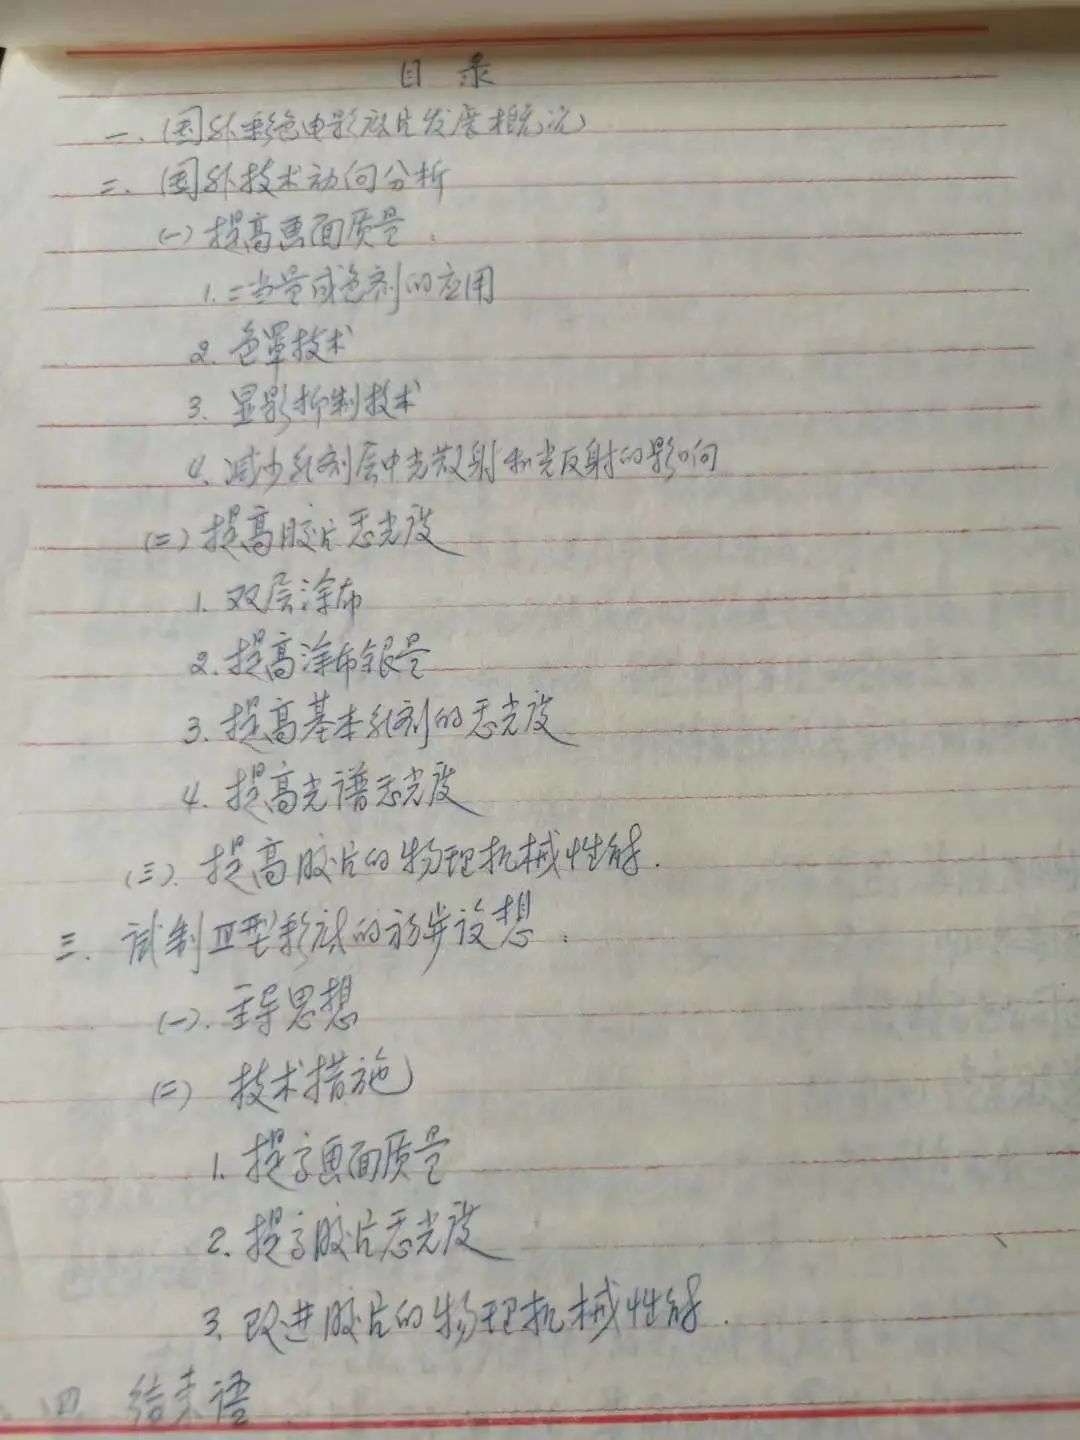 目录
一、国外彩色电影胶片发展概况
二、国外技术动向分析
(一)提高画面质量:
1.二当量成色剂的应用
2.色罩技术
3.显影抑制技术
4.减少乳剂层中光散射和光反射的影响
(二)提高胶片感光度
1.双层涂布
2.提高涂布银量
3.提高基本乳剂的感光度
4.提高光谱感光度
(三).提高胶片的物理机械性能.
三.试制Ⅲ型彩底的初步设想:
(一).主导思想
(二)技术措施
1.提高画面质量
2.提高胶片感光度
3.改进胶片的物理机械性能.
四 结束语